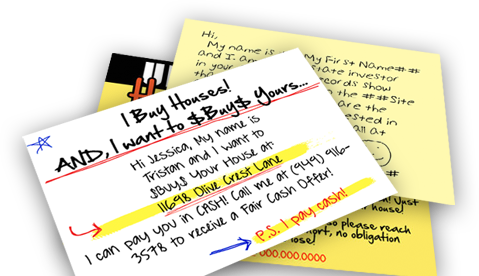 I Buy Houses!
AND, I want to $Buy$ Yours...
Hi Jessica, My name is
Tristan and I want to
$Buy$ Your House at
11698 Olive Crest Lane
I can pay you in CASH! Call me at (949) 916-
3578 to receive a Fair Cash Offer!
P.S. I pay cash!
Hi,
My name is My First Name##
and I. am state investor
in your records show
the ##Site
are the
ested in
all at
house!
so please reach
ort, no obligation
lose!
000.000.0000